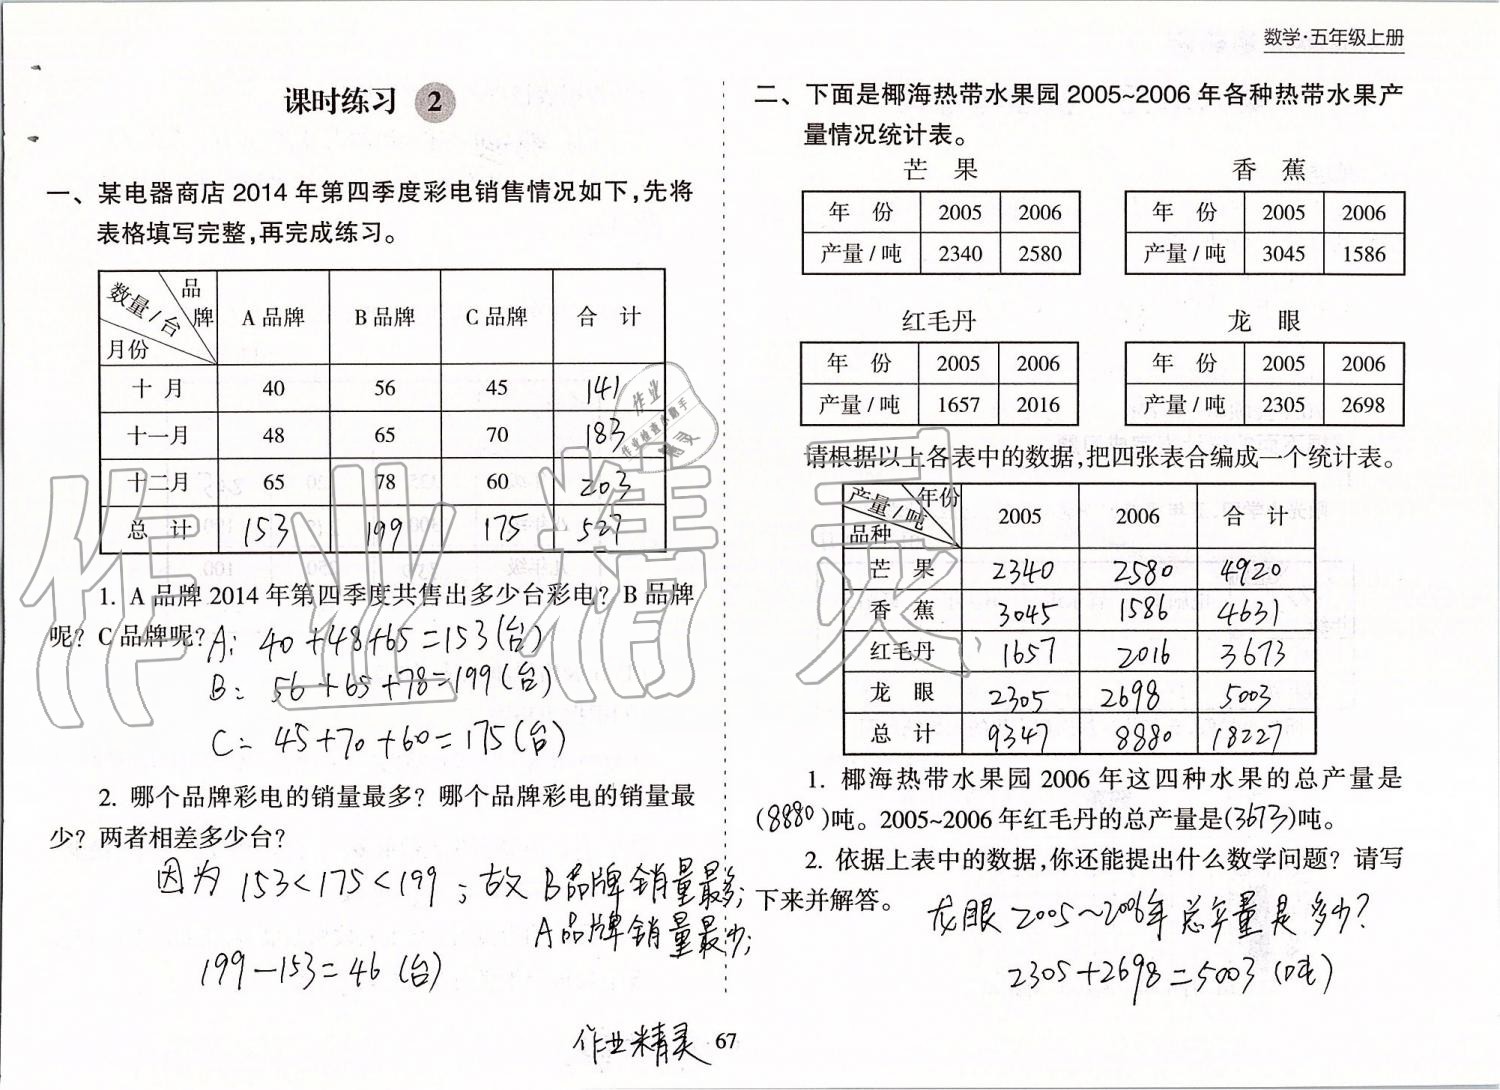 数学·五年级上册
课时练习 2
一、某电器商店2014年第四季度彩电销售情况如下,先将
表格填写完整,再完成练习。
数量/台 品牌 月份 A品牌 B品牌 C品牌 合 计
十 月 40 56 45 141
十一月 48 65 70 183
十二月 65 78 60 203
总 计 153 199 175 527
1. A品牌2014年第四季度共售出多少台彩电?B品牌
呢?C品牌呢? A: 40+48+65=153(台)
B: 56+65+78=199(台)
C: 45+70+60=175(台)
2. 哪个品牌彩电的销量最多?哪个品牌彩电的销量最
少?两者相差多少台?
因为 153<175<199;故B品牌销量最多;
A品牌销量最少;
199-153=46(台)
二、下面是椰海热带水果园2005~2006年各种热带水果产
量情况统计表。
芒 果
年 份 2005 2006
产量/吨 2340 2580
香 蕉
年 份 2005 2006
产量/吨 3045 1586
红毛丹
年 份 2005 2006
产量/吨 1657 2016
龙 眼
年 份 2005 2006
产量/吨 2305 2698
请根据以上各表中的数据,把四张表合编成一个统计表。
产量/吨 年份 品种 2005 2006 合 计
芒 果 2340 2580 4920
香 蕉 3045 1586 4631
红毛丹 1657 2016 3673
龙 眼 2305 2698 5003
总 计 9347 8880 18227
1. 椰海热带水果园2006年这四种水果的总产量是
(8880)吨。2005~2006年红毛丹的总产量是(3673)吨。
2. 依据上表中的数据,你还能提出什么数学问题?请写
下来并解答。
龙眼2005~2006年总产量是多少?
2305+2698=5003(吨)
作业精灵
67
作业精灵
作业
作业检查小助手
精灵